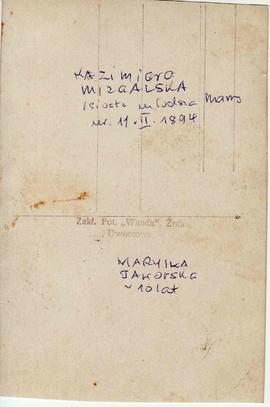 KAZIMIERA
MIZGALSKA
siostra młodsza Mamy
ur. 11. II. 1894
Zakł. Fot. „Wanda”, Żnin
Dworcowa
MARYJKA
JAWORSKA
~ 10 lat